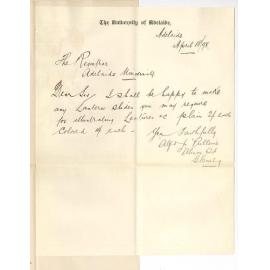 The University of Adelaide,
Adelaide
April 18/98
The Registrar
Adelaide University
Dear Sir, I shall be happy to make
any Lantern Slides you may require
for illustrating Lectures &c plain 2/ each
colored 4/ each -
Yours Faithfully
Alfd J.
Glenelg